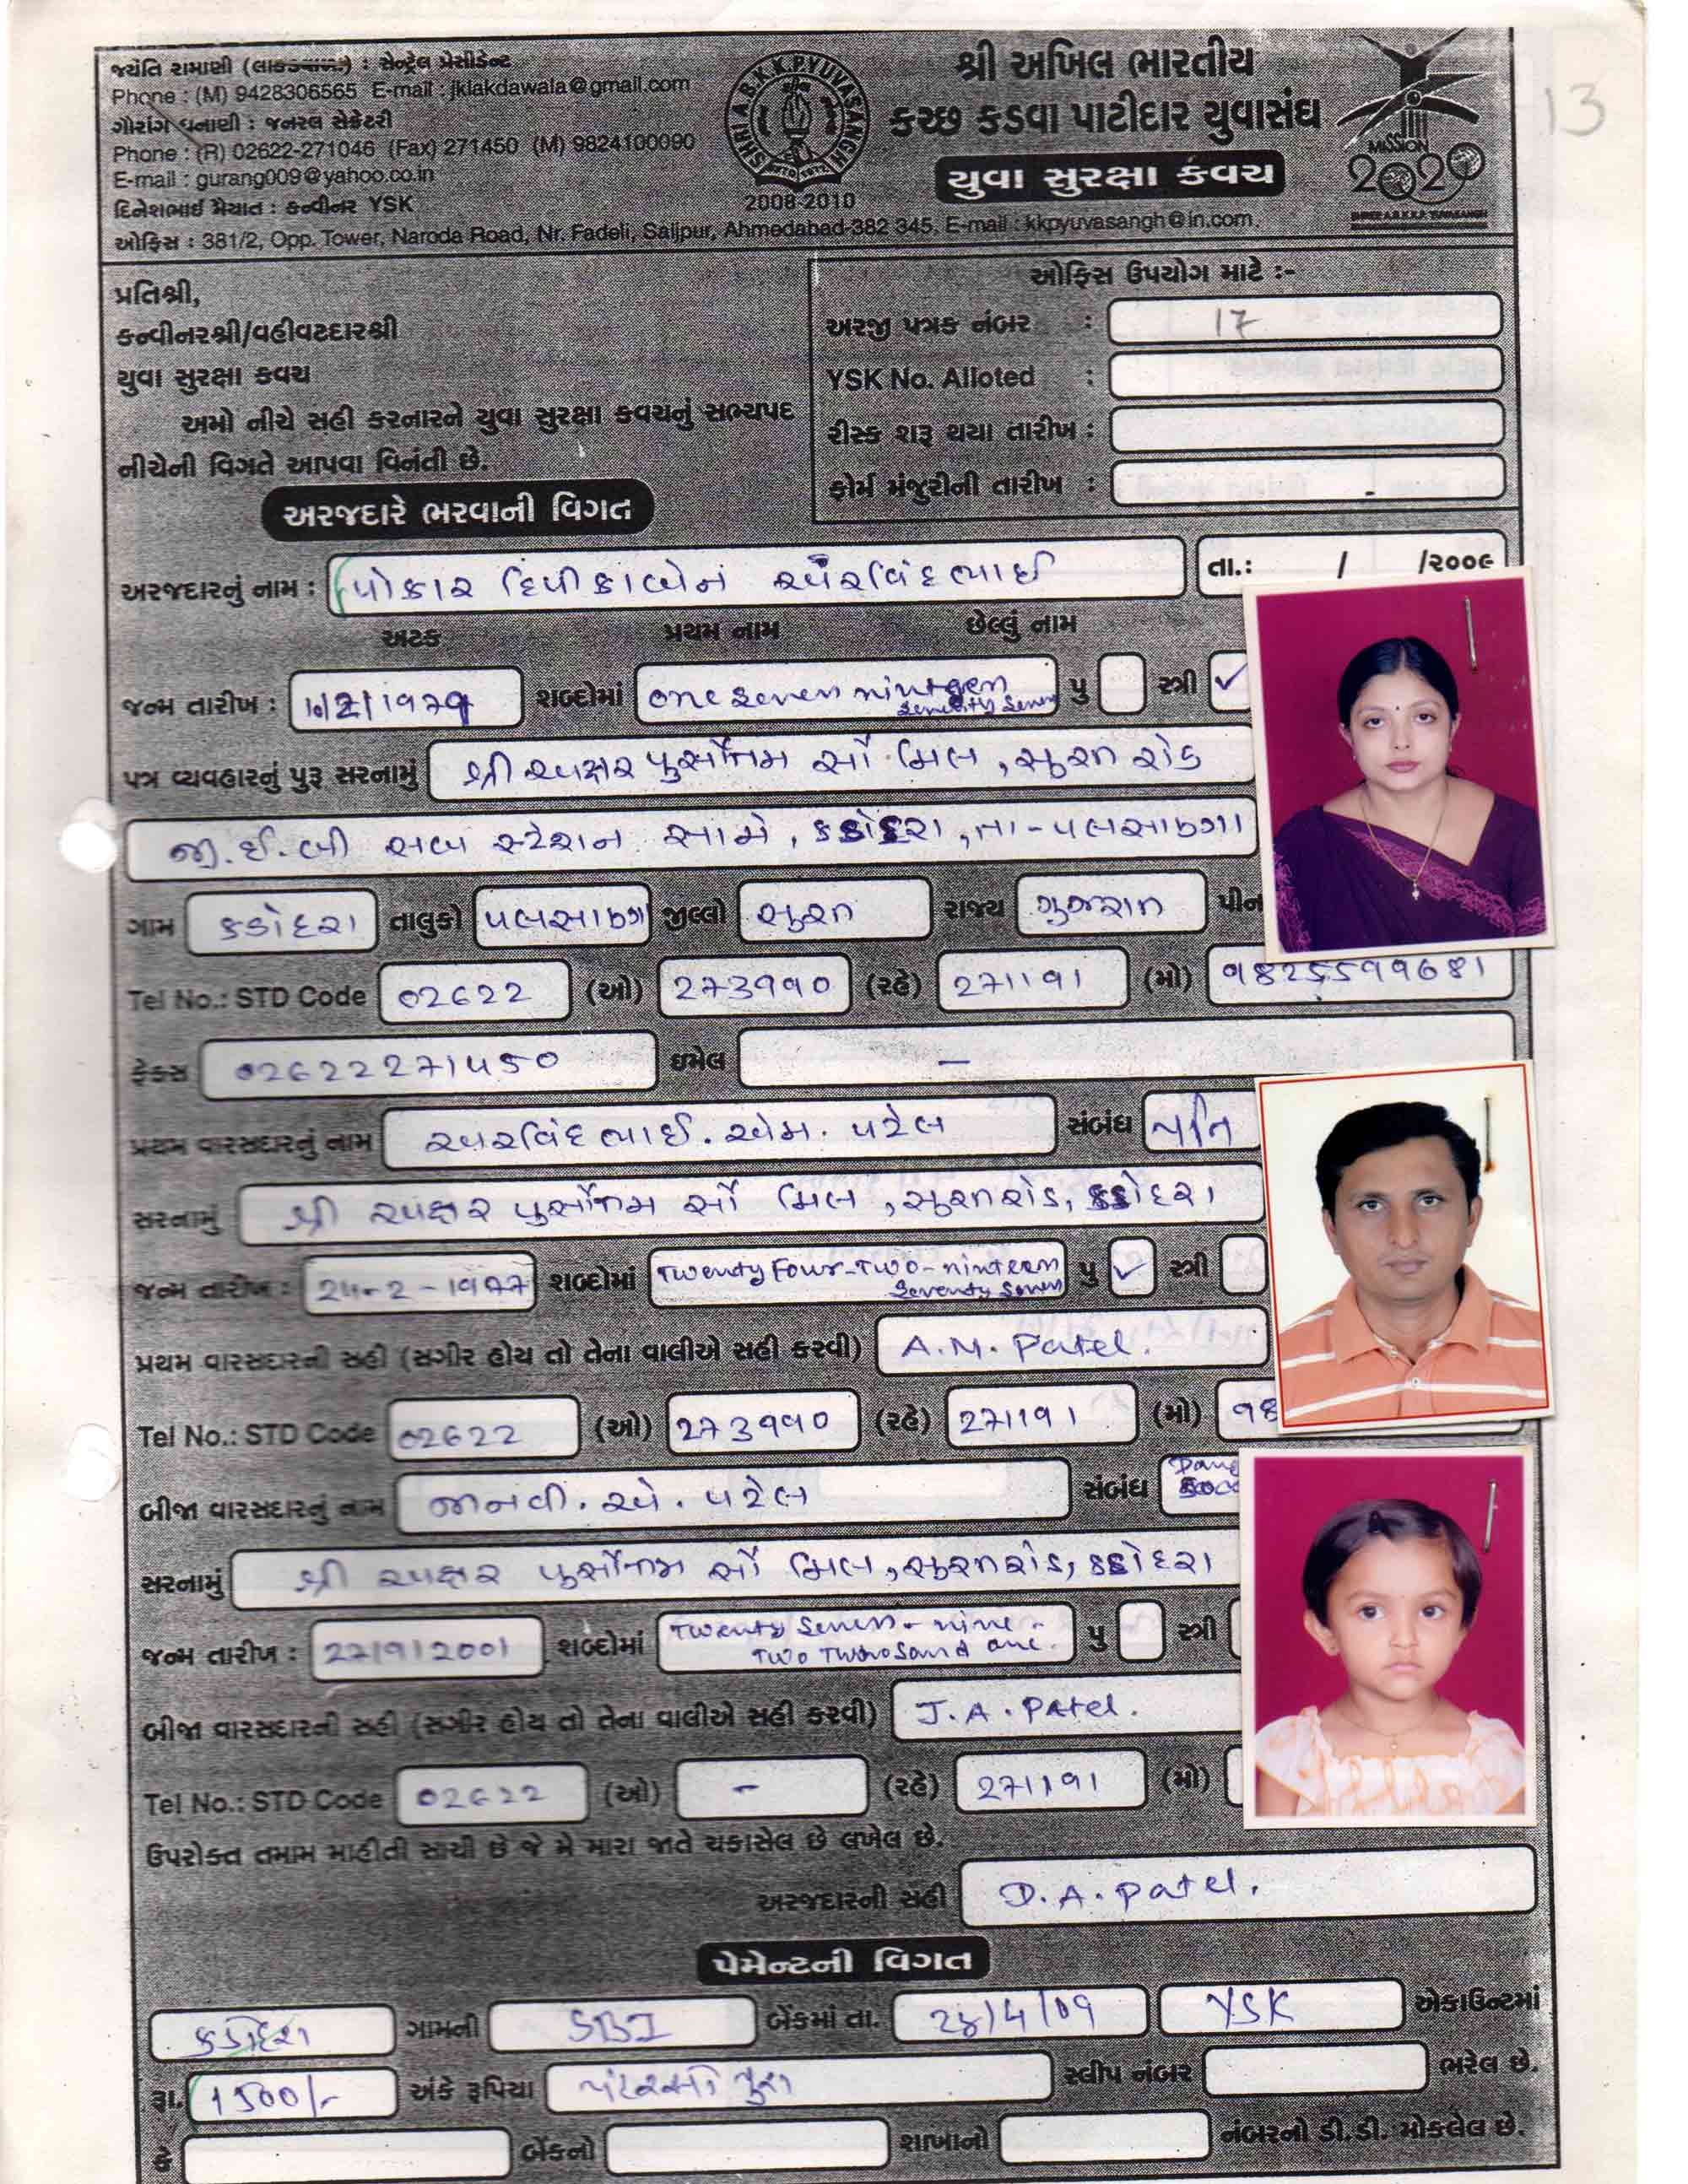 જયંતિ રામાણી (લાકડાવાળા) : સેન્ટ્રલ પ્રેસીડેન્ટ
Phone : (M) 9428306565 E-mail : jklakdawala@gmail.com
ગૌરાંગ ધનાણી : જનરલ સેક્રેટરી
Phone : (R) 02622-271046 (Fax) 271450 (M) 9824100090
E-mail : gurang009@yahoo.co.in
દિનેશભાઈ મૈયાત : કન્વીનર YSK
SHRI A.B.K.K.P. YUVASANGH
2008-2010
શ્રી અખિલ ભારતીય
કચ્છ કડવા પાટીદાર યુવાસંઘ
યુવા સુરક્ષા કંવચ
MISSION
2020
13
ઓફિસ : 381/2, Opp. Tower, Naroda Road, Nr. Fadeli, Saijpur, Ahmedabad-382 345. E-mail : kkpyuvasangh@in.com.
પ્રતિશ્રી,
કન્વીનરશ્રી/વહીવટદારશ્રી
યુવા સુરક્ષા કવચ
અમો નીચે સહી કરનારને યુવા સુરક્ષા કવચનું સભ્યપદ
નીચેની વિગતે આપવા વિનંતી છે.
ઓફિસ ઉપયોગ માટે :-
અરજી પત્રક નંબર : 17
YSK No. Alloted :
રીસ્ક શરૂ થયા તારીખ :
ફોર્મ મંજુરીની તારીખ : -
અરજદારે ભરવાની વિગત
અરજદારનું નામ : પોકાર દિપીકાબેન અરવિંદભાઈ તા.: / /૨૦૦૯
અટક પ્રથમ નામ છેલ્લું નામ
જન્મ તારીખ : શબ્દોમાં one seven ninteen seventy seven પુ સ્ત્રી ✓
પત્ર વ્યવહારનું પુરૂ સરનામું શ્રી અક્ષર પુર્સોતમ સૉ.મિલ, સુરત રોડ
જી.ઈ.બી સબ સ્ટેશન સામે, કડોદરા, તા-પલસાણા
ગામ કડોદરા તાલુકો પલસાણા જીલ્લો સુરત રાજ્ય ગુજરાત પીન
Tel No.: STD Code 02622 (ઓ) 273990 (રહે) 271191 (મો) 9825599681
ફેક્સ 02622271450 ઇમેલ -
પ્રથમ વારસદારનું નામ અરવિંદભાઈ. એમ. પટેલ સંબંધ પતિ
સરનામું શ્રી અક્ષર પુર્સોતમ સૉ મિલ, સુરત રોડ, કડોદરા
જન્મ તારીખ : 24-2-1977 શબ્દોમાં Twenty Four-Two-ninteen Seventy Seven પુ ✓ સ્ત્રી
પ્રથમ વારસદારની સહી (સગીર હોય તો તેના વાલીએ સહી કરવી) A.M. Patel.
Tel No.: STD Code 02622 (ઓ) 273990 (રહે) 271191 (મો) 98
બીજા વારસદારનું નામ જાનવી. એ. પટેલ સંબંધ
સરનામું શ્રી અક્ષર પુર્સોતમ સૉ મિલ, સુરત રોડ, કડોદરા
જન્મ તારીખ : 27/9/2001 શબ્દોમાં Twenty Seven - nine - Two Twosand one. પુ સ્ત્રી
બીજા વારસદારની સહી (સગીર હોય તો તેના વાલીએ સહી કરવી) J.A. Patel.
Tel No.: STD Code 02622 (ઓ) - (રહે) 271191 (મો)
ઉપરોક્ત તમામ માહીતી સાચી છે જે મે મારા જાતે ચકાસેલ છે લખેલ છે.
અરજદારની સહી D.A. Patel.
પેમેન્ટની વિગત
કડોદરા ગામની SBI બેંકમાં તા. 28/4/09 YSK એકાઉન્ટમાં
રૂા. 1500/- અંકે રૂપિયા પંદરસો પુરા સ્લીપ નંબર ભરેલ છે.
કે બેંકનો શાખાનો નંબરનો ડી.ડી. મોકલેલ છે.